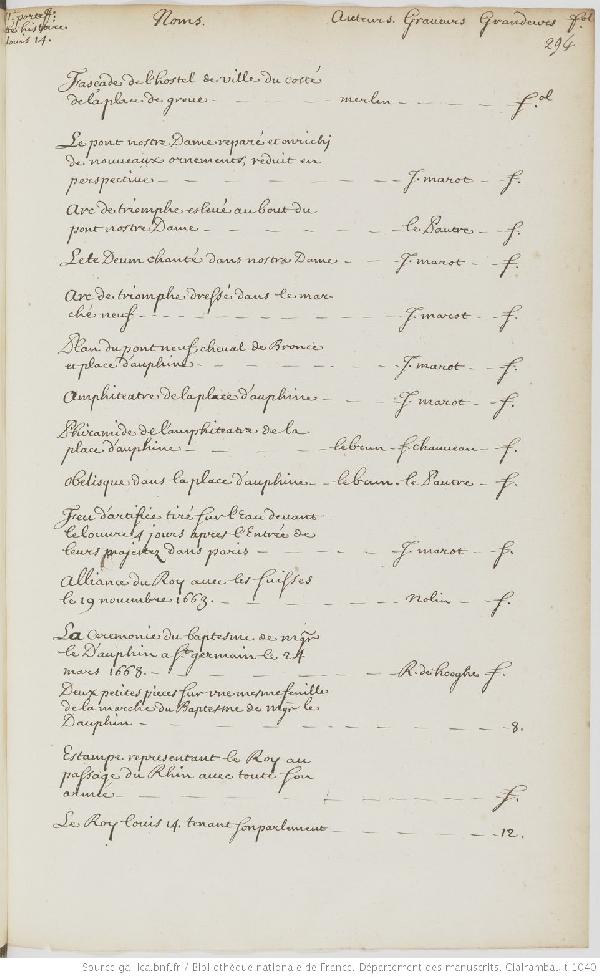 Noms. Auteurs. Graveurs Grandeurs fol
294
Louis 14.
Fascade de l'hostel de ville du costé
de la place de greve — merlen — f.ol
Le pont nostre Dame reparé et enrichj
de nouveaux ornements, réduit en
perspective — J. marot — f.
Arc de triomphe eslevé au bout du
pont nostre Dame — le Pautre — f.
Le te Deum chanté dans nostre Dame — J. marot — f.
Arc de triomphe dressé dans le mar
ché neuf — J. marot — f.
Plan du pont neuf, cheval de Bronze
et place d'auphine — J. marot — f.
Amphiteatre de la place d'auphine — J. marot — f.
Phiramide de l'amphiteatre de la
place d'auphine — lebrun — f. chauveau — f.
obelisque dans la place d'auphine — lebrun — le Pautre — f.
Feu d'artifice tiré sur l'Eau devant
le louvre 4 jours apres l'Entrée de
leurs majestez dans paris — J. marot — f.
Alliance du Roy avec les suisses
le 19 novembre 1663. — Nolin — f.
La Ceremonie du baptesme de mgr
le Dauphin a st germain le 24
mars 1668. — R. de hooghe f.
Deux petites pieces sur vne mesme feuille
de la marche du Baptesme de mgr le
Dauphin — 8.
Estampe representant le Roy au
passage du Rhin avec toute son
armée — f.
Le Roy louis 14. tenant son parlement — 12.
Source gallica.bnf.fr / Bibliothèque nationale de France. Département des manuscrits. Clairambault 1040